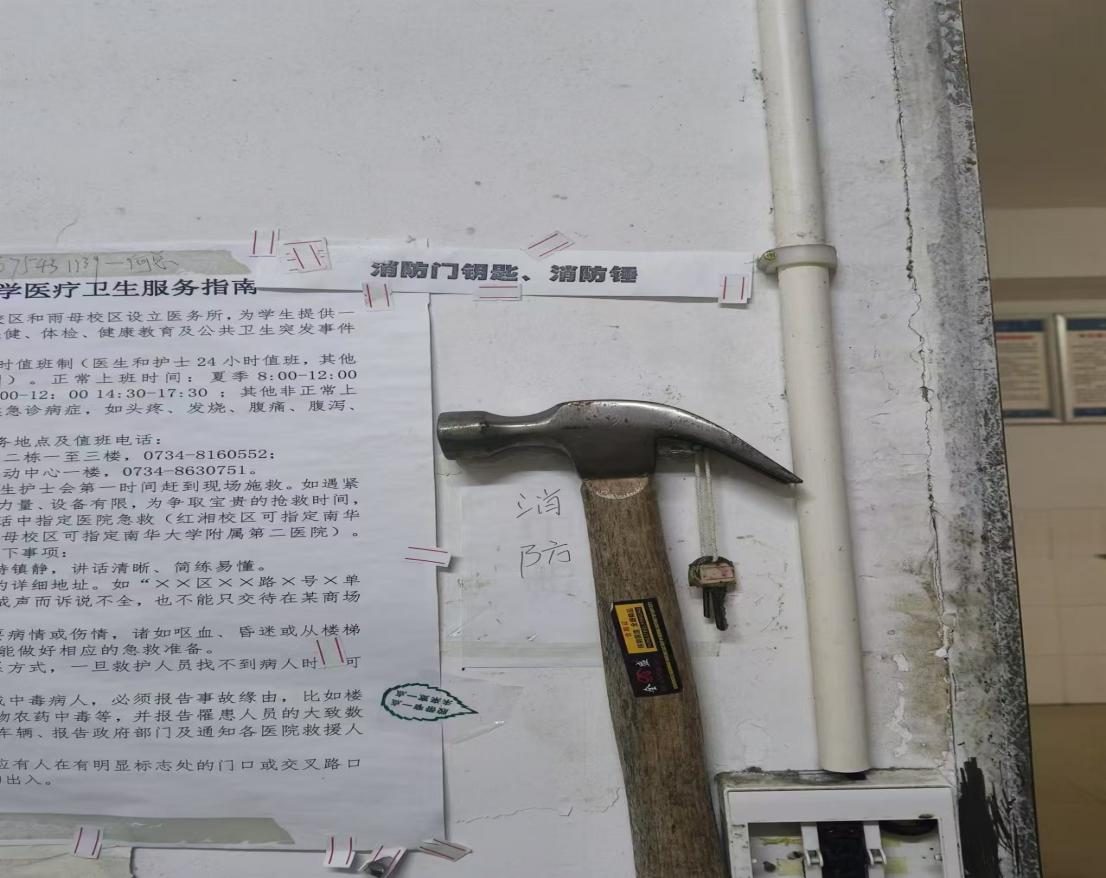 消防门钥匙、消防锤
学医疗卫生服务指南
校区和雨母校区设立医务所，为学生提供一
健、体检、健康教育及公共卫生突发事件
时值班制（医生和护士 24 小时值班，其他
）。正常上班时间：夏季 8:00-12:00
00-12：00 14:30-17:30 ；其他非正常上
急诊病症，如头疼、发烧、腹痛、腹泻、
务地点及值班电话：
二栋一至三楼，0734-8160552；
动中心一楼，0734-8630751。
生护士会第一时间赶到现场施救。如遇紧
力量、设备有限，为争取宝贵的抢救时间，
话中指定医院急救（红湘校区可指定南华
母校区可指定南华大学附属第二医院）。
下事项：
持镇静，讲话清晰、简练易懂。
的详细地址。如“××区××路×号×单
成声而诉说不全，也不能只交待在某商场
要病情或伤情，诸如呕血、昏迷或从楼梯
能做好相应的急救准备。
系方式，一旦救护人员找不到病人时 可
或中毒病人，必须报告事故缘由，比如楼
物农药中毒等，并报告罹患人员的大致数
车辆、报告政府部门及通知各医院救援人
应有人在有明显标志处的门口或交叉路口
出入。
消
防